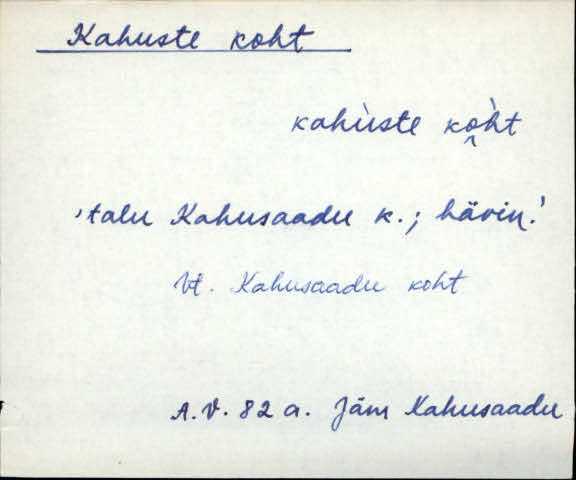 Kahuste koht
kahùste ko̭h̀t
'talu Kahusaadu k.; hävin.'
Vt. Kahusaadu koht
A.V. 82 a. Jäm Kahusaadu